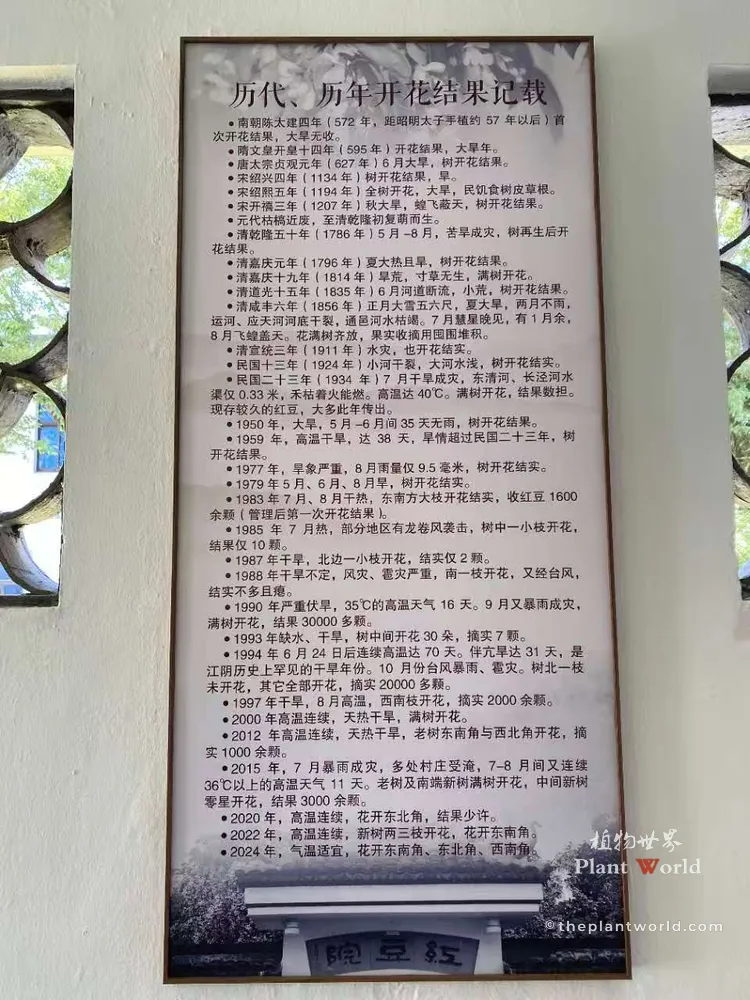 历代、历年开花结果记载
●南朝陈太建四年（572 年，距昭明太子手植约 57 年以后）首
次开花结果，大旱无收。
●隋文皇开皇十四年（595 年）开花结果，大旱年。
●唐太宗贞观元年（627 年）6 月大旱，树开花结果。
●宋绍兴四年（1134 年）树开花结果，旱。
●宋绍熙五年（1194 年）全树开花，大旱，民饥食树皮草根。
●宋开禧三年（1207 年）秋大旱，蝗飞蔽天，树开花结果。
●元代枯槁近废，至清乾隆初复萌而生。
●清乾隆五十年（1786 年）5 月-8月，苦旱成灾，树再生后开
花结果。
●清嘉庆元年（1796 年）夏大热且旱，树开花结果。
●清嘉庆十九年（1814 年）旱荒，寸草无生，满树开花。
●清道光十五年（1835 年）6 月河道断流，小荒，树开花结果。
●清咸丰六年（1856 年）正月大雪五六尺，夏大旱，两月不雨，
运河、应天河河底干裂，通邑河水枯竭。7 月慧星晚见，有 1 月余，
8 月飞蝗盖天。花满树齐放，果实收摘用囤围堆积。
●清宣统三年（1911 年）水灾，也开花结实。
●民国十三年（1924 年）小河干裂，大河水浅，树开花结实。
●民国二十三年（1934 年）7 月干旱成灾，东清河、长泾河水
渠仅 0.33 米，禾枯着火能燃。高温达 40℃。满树开花，结果数担。
现存较久的红豆，大多此年传出。
●1950 年，大旱，5 月-6 月间 35 天无雨，树开花结果。
●1959 年，高温干旱，达 38 天，旱情超过民国二十三年，树
开花结果。
●1977 年，旱象严重，8 月雨量仅 9.5 毫米，树开花结实。
●1979 年 5 月、6 月、8 月旱，树开花结实。
●1983 年 7 月、8 月干热，东南方大枝开花结实，收红豆 1600
余颗（管理后第一次开花结果）。
●1985 年 7 月热，部分地区有龙卷风袭击，树中一小枝开花，
结果仅 10 颗。
●1987 年干旱，北边一小枝开花，结实仅 2 颗。
●1988 年干旱不定，风灾、雹灾严重，南一枝开花，又经台风，
结实不多且瘪。
●1990 年严重伏旱，35℃的高温天气 16 天。9 月又暴雨成灾，
满树开花，结果 30000 多颗。
●1993 年缺水、干旱，树中间开花 30 朵，摘实 7 颗。
●1994 年 6 月 24 日后连续高温达 70 天。伴亢旱达 31 天，是
江阴历史上罕见的干旱年份。10 月份台风暴雨、雹灾。树北一枝
未开花，其它全部开花，摘实 20000 多颗。
●1997 年干旱，8 月高温，西南枝开花，摘实 2000 余颗。
●2000 年高温连续，天热干旱，满树开花。
●2012 年高温连续，天热干旱，老树东南角与西北角开花，摘
实 1000 余颗。
●2015 年，7 月暴雨成灾，多处村庄受淹，7-8 月间又连续
36℃以上的高温天气 11 天。老树及南端新树满树开花，中间新树
零星开花，结果 3000 余颗。
●2020 年，高温连续，花开东北角，结果少许。
●2022 年，高温连续，新树两三枝开花，花开东南角。
●2024 年，气温适宜，花开东南角、东北角、西南角。
植物世界
Plant World
©theplantworld.com
院豆紅